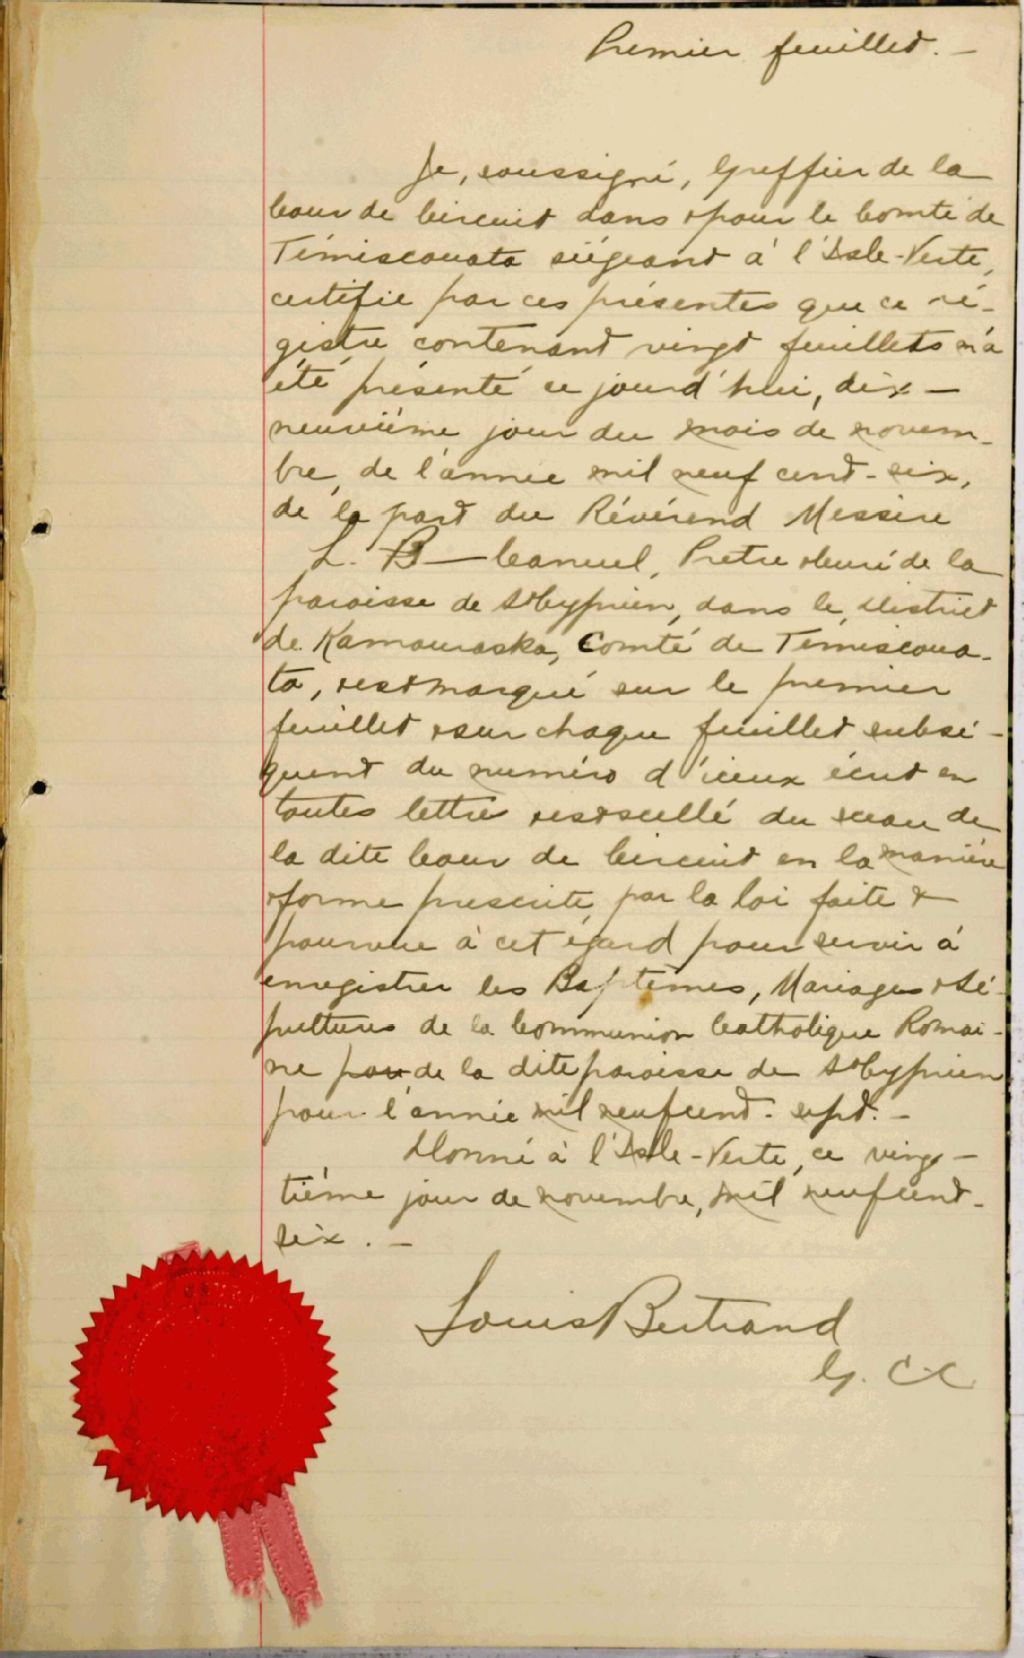 Premier feuillet. —
Je, soussigné, Greffier de la
Cour de Circuit dans & pour le Comté de
Témiscouata siégeant à l'Isle-Verte,
certifie par ces présentes que ce ré-
gistre contenant vingt feuillets m'a
été présenté ce jourd'hui, dix —
neuvième jour du mois de novem-
bre, de l'année mil neuf cent-six,
de la part du Révérend Messire
L. B — Canuel, Prêtre & Curé de la
paroisse de St Cyprien, dans le District
de Kamouraska, Comté de Témiscoua-
ta, & est marqué sur le premier
feuillet & sur chaque feuillet subsé-
quent du numéro d'iceux écrit en
toutes lettres & est scellé du sceau de
la dite Cour de Circuit en la manière
& forme prescrite par la loi faite &
pourvue à cet égard pour servir à
enregistrer les Baptêmes, Mariages & Sé-
pultures de la Communion Catholique Romai-
ne pour de la dite paroisse de St Cyprien
pour l'année mil neuf cent-sept. —
Donné à l'Isle-Verte, ce ving-
tième jour de novembre, mil neuf cent-
six. —
Louis Bertrand
G. C C